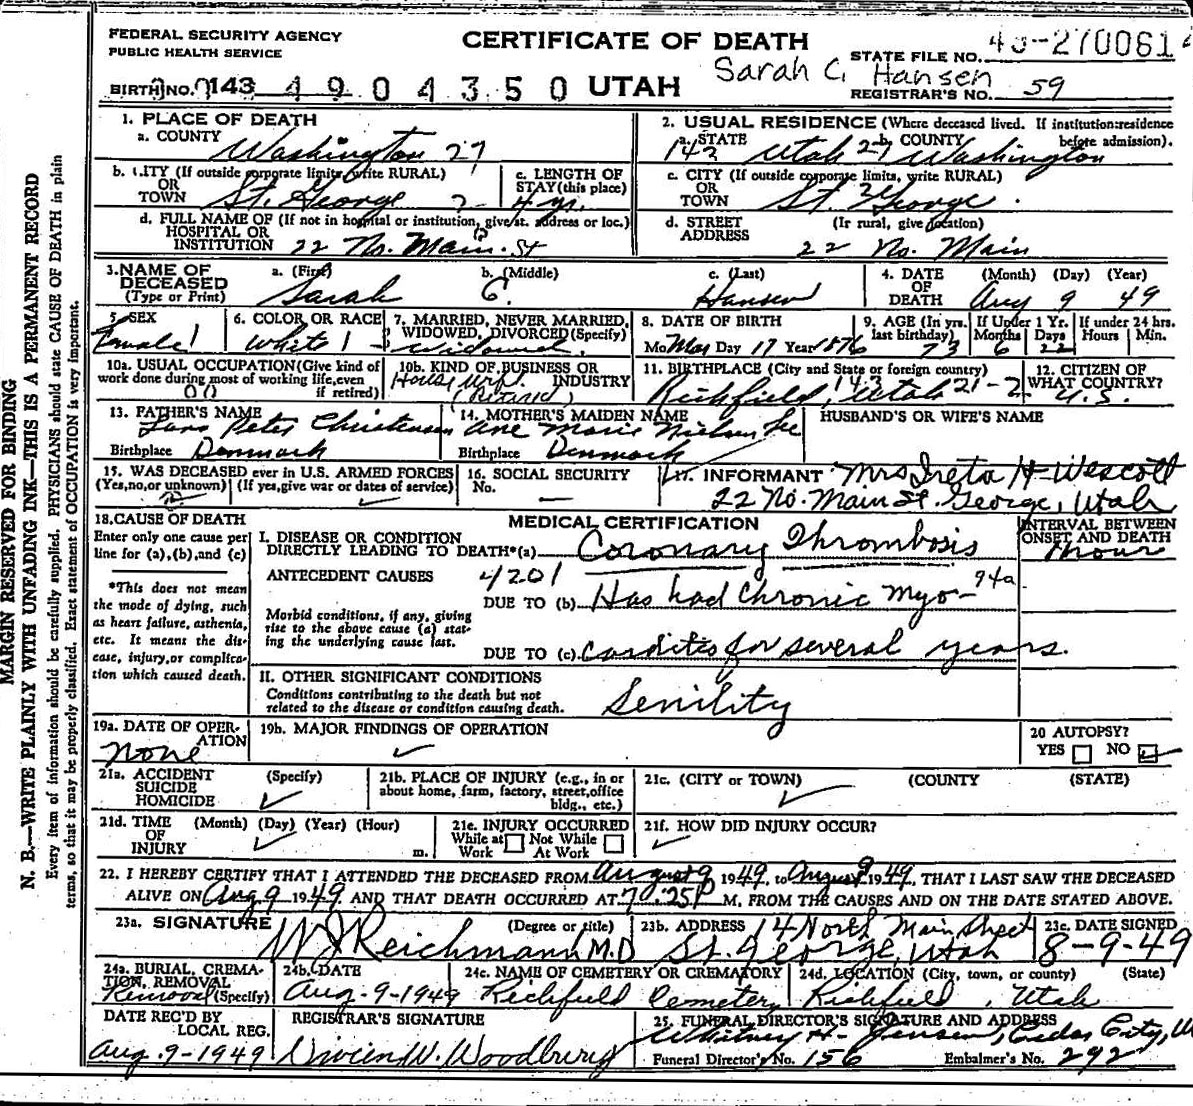 FEDERAL SECURITY AGENCY
PUBLIC HEALTH SERVICE
CERTIFICATE OF DEATH
STATE FILE NO. 49-270061
Sarah C. Hansen
BIRTH NO. 143 4904350 UTAH
REGISTRAR'S NO. 59
MARGIN RESERVED FOR BINDING
N. B.—WRITE PLAINLY WITH UNFADING INK—THIS IS A PERMANENT RECORD
Every item of information should be carefully supplied. PHYSICIANS should state CAUSE OF DEATH in plain
terms, so that it may be properly classified. Exact statement of OCCUPATION is very important.
1. PLACE OF DEATH
a. COUNTY Washington 27
2. USUAL RESIDENCE (Where deceased lived. If institution:residence
before admission).
a. STATE 143 Utah 27 b. COUNTY Washington
b. CITY (If outside corporate limits, write RURAL)
OR
TOWN St. George 2
c. LENGTH OF
STAY (this place)
4 yr.
c. CITY (If outside corporate limits, write RURAL)
OR
TOWN St. George.
d. FULL NAME OF (If not in hospital or institution, give/st. address or loc.)
HOSPITAL OR
INSTITUTION 22 No. Main St
d. STREET (If rural, give location)
ADDRESS 22 No. Main
3. NAME OF
DECEASED
(Type or Print)
a. (First) Sarah
b. (Middle) C.
c. (Last) Hansen
4. DATE
OF
DEATH
(Month) (Day) (Year)
Aug 9 49
5. SEX
Female 1
6. COLOR OR RACE
White 1
7. MARRIED, NEVER MARRIED,
WIDOWED, DIVORCED (Specify)
Widowed.
8. DATE OF BIRTH
Mo. Mar Day 17 Year 1876
9. AGE (In yrs.
last birthday)
73
If Under 1 Yr.
Months Days
6 22
If under 24 hrs.
Hours Min.
10a. USUAL OCCUPATION (Give kind of
work done during most of working life, even
if retired)
00
10b. KIND OF BUSINESS OR
INDUSTRY
House Wife
(Retired)
11. BIRTHPLACE (City and State or foreign country)
Richfield, 143 Utah 21-2
12. CITIZEN OF
WHAT COUNTRY?
U.S.
13. FATHER'S NAME
Lars Peter Christensen
Birthplace Denmark
14. MOTHER'S MAIDEN NAME
Ane Marie Nielsen
Birthplace Denmark
HUSBAND'S OR WIFE'S NAME
15. WAS DECEASED ever in U.S. ARMED FORCES
(Yes,no,or unknown) (If yes,give war or dates of service)
no
16. SOCIAL SECURITY
No. —
17. INFORMANT Mrs Ireta H. Wescott
22 No. Main St. George, Utah
18. CAUSE OF DEATH
Enter only one cause per
line for (a),(b),and (c)
*This does not mean
the mode of dying, such
as heart failure, asthenia,
etc. It means the dis-
ease, injury,or complica-
tion which caused death.
MEDICAL CERTIFICATION
I. DISEASE OR CONDITION
DIRECTLY LEADING TO DEATH*(a) Coronary Thrombosis
INTERVAL BETWEEN
ONSET AND DEATH
1 hour
ANTECEDENT CAUSES 4201
Morbid conditions, if any, giving
rise to the above cause (a) stat-
ing the underlying cause last.
DUE TO (b) Has had chronic myo- 94a
DUE TO (c) carditis for several years.
II. OTHER SIGNIFICANT CONDITIONS
Conditions contributing to the death but not
related to the disease or condition causing death.
Senility
19a. DATE OF OPER-
ATION
none
19b. MAJOR FINDINGS OF OPERATION
20 AUTOPSY?
YES NO
21a. ACCIDENT (Specify)
SUICIDE
HOMICIDE
21b. PLACE OF INJURY (e.g., in or
about home, farm, factory, street,office
bldg., etc.)
21c. (CITY or TOWN) (COUNTY) (STATE)
21d. TIME (Month) (Day) (Year) (Hour)
OF
INJURY m.
21e. INJURY OCCURRED
While at Not While
Work At Work
21f. HOW DID INJURY OCCUR?
22. I HEREBY CERTIFY THAT I ATTENDED THE DECEASED FROM August 9 1949, to August 9 1949, THAT I LAST SAW THE DECEASED
ALIVE ON Aug 9 1949 AND THAT DEATH OCCURRED AT 7:25P M, FROM THE CAUSES AND ON THE DATE STATED ABOVE.
23a. SIGNATURE (Degree or title)
W J Reichmann M.D
23b. ADDRESS 14 North Main Street
St. George, Utah
23c. DATE SIGNED
8-9-49
24a. BURIAL, CREMA-
TION, REMOVAL
(Specify)
Removal
24b. DATE
Aug-9-1949
24c. NAME OF CEMETERY OR CREMATORY
Richfield Cemetery
24d. LOCATION (City, town, or county) (State)
Richfield, Utah
DATE REC'D BY
LOCAL REG.
Aug. 9-1949
REGISTRAR'S SIGNATURE
Vivien W. Woodbury
25. FUNERAL DIRECTOR'S SIGNATURE AND ADDRESS
Whitney H. Jensen, Cedar City, U
Funeral Director's No. 156 Embalmer's No. 292